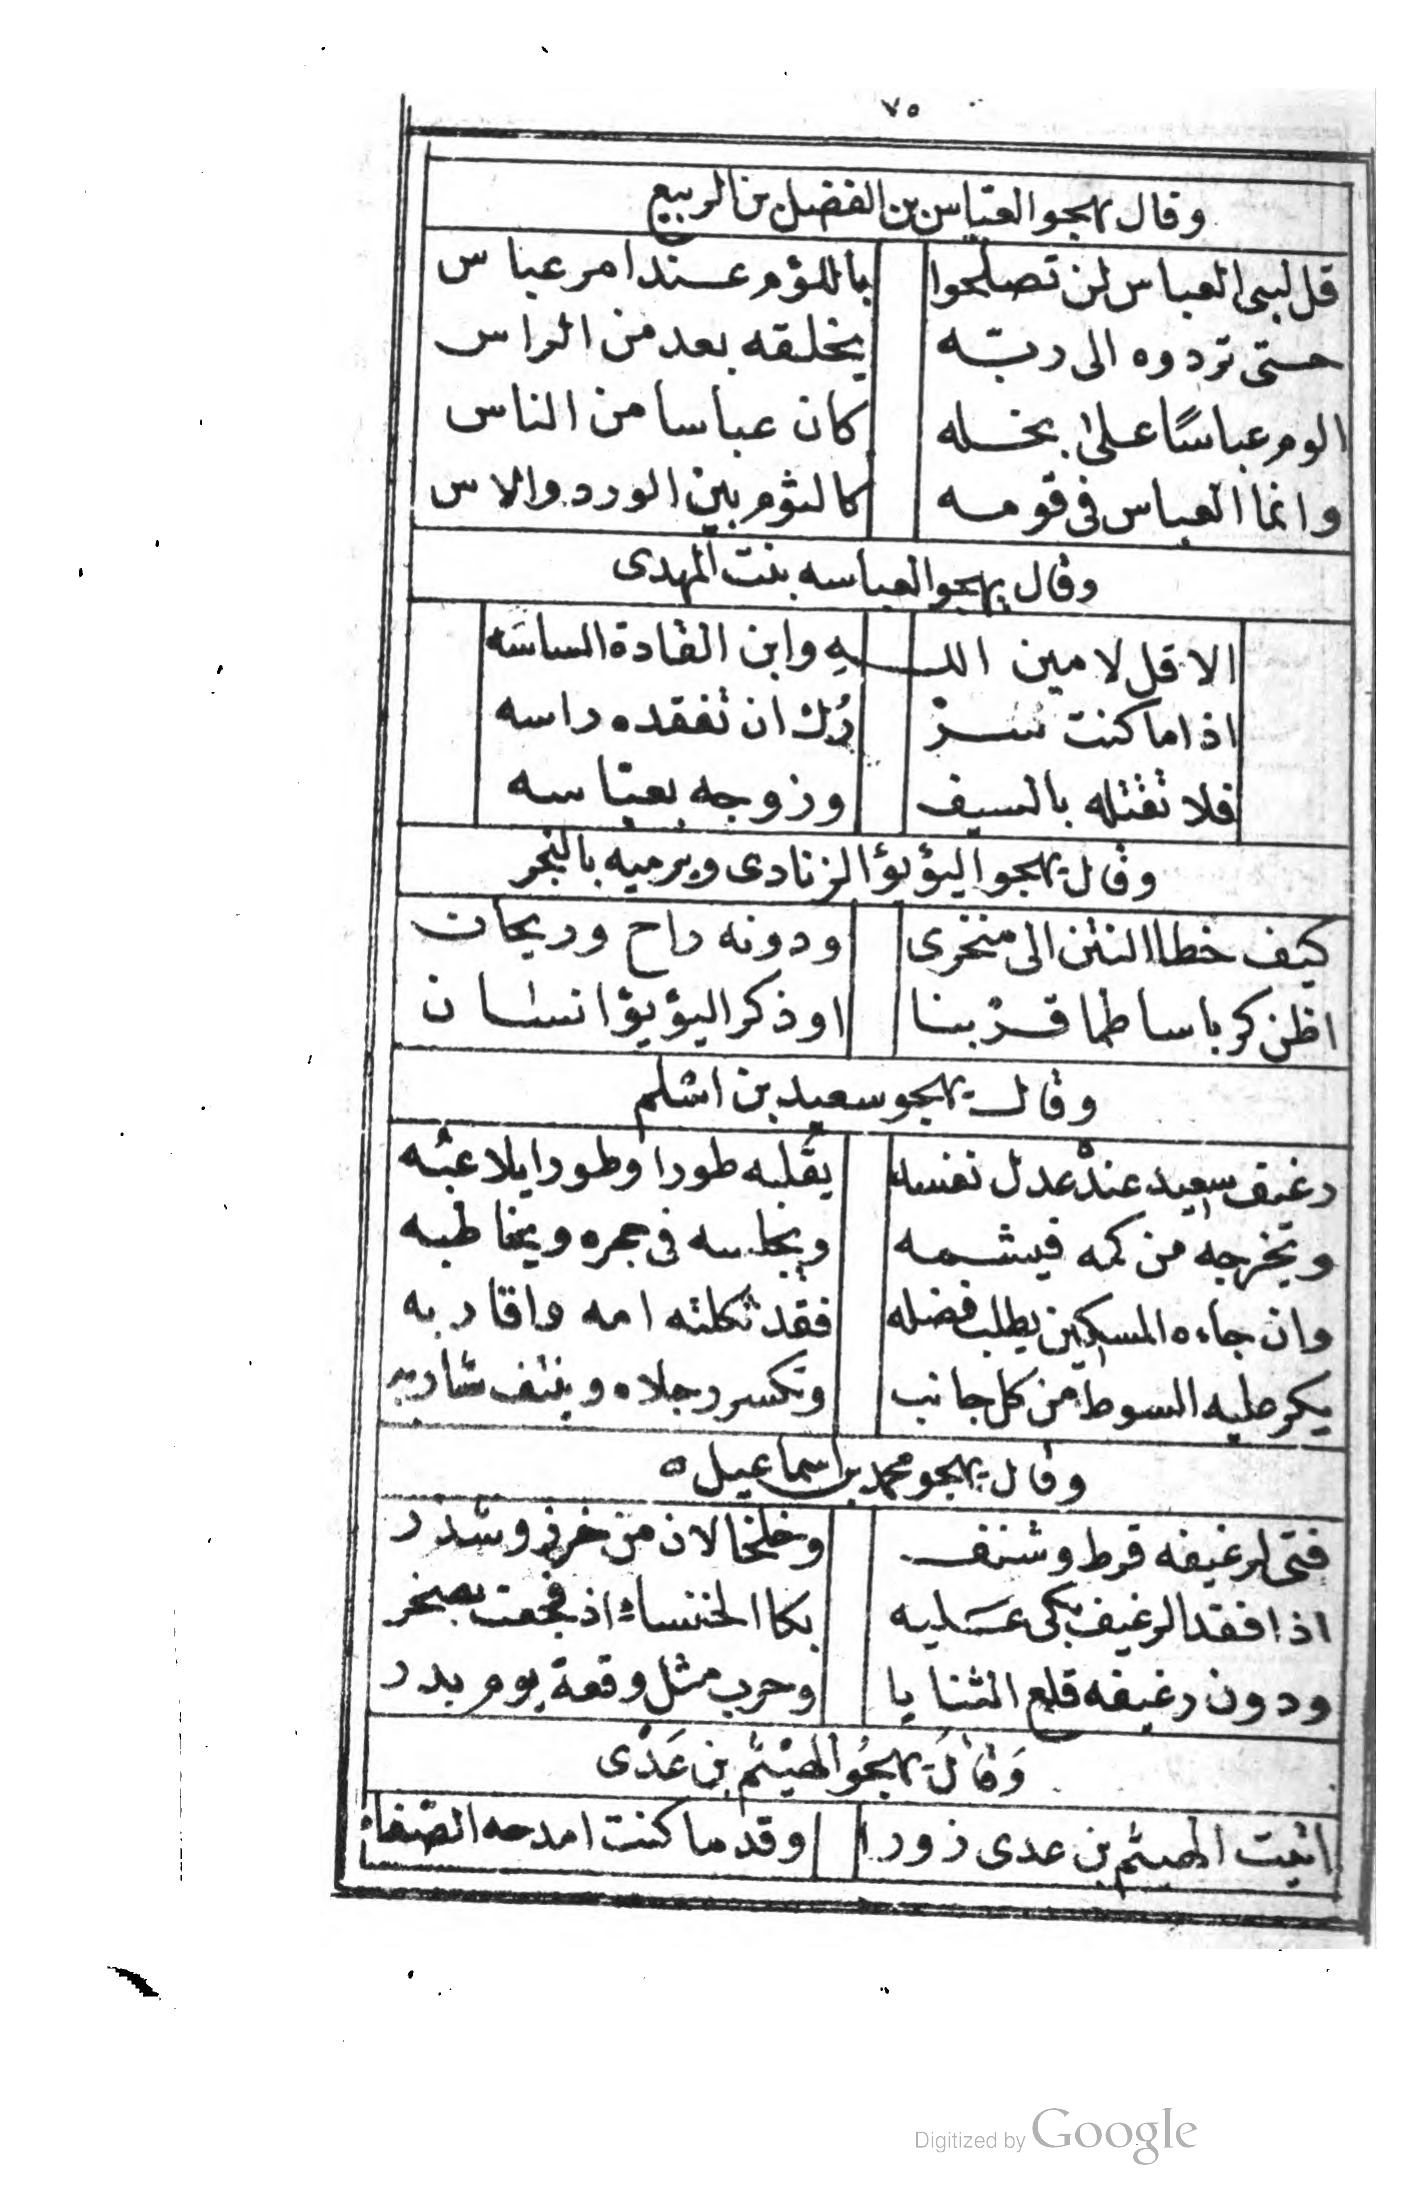 ٧٥
وقال يهجوا العبّاس بن الفضل بن الربيع
قل لبنى العباس لن تصلحوا باللؤم عندا مر عباس
حتى تردوه الى ربّه يخلقه بعد من الراس
الوم عباسًا على بخله كان عباسا من الناس
وانما العباس فى قومه كالثوم بين الورد والاس
وقال يهجوا العباسه بنت المهدى
الا قل لامين اللـهِ وابن القادة الساسَه
اذا ما كنت سرْ رُك ان تفقده راسه
فلا تقتله بالسيف وزوجه بعبّاسه
وقال يهجوا اليؤيؤ الزنادى ويرميه بالبخر
كيف خطا النتن الى منخرى ودونه راح وريحان
اظن كرباسا طما قربنا اوذكر اليؤيؤ انسان
وقال يهجو سعيد بن اسلم
رغيف سعيد عنده عدل نفسه يقلبه طورا وطورا يلاعبُه
ويخرجه من كمه فيشمه ويجلسه فى حجره ويخاطبه
وان جاءه المسكين يطلب فضله فقد ثكلته امه واقاربه
يكر عليه السوط من كل جانب وتكسر رجلاه وينتف شاربه
وقال يهجو محمد بن اسماعيل ه
فتى لرغيفه قرط وشنف وخلخالان من خرز وشدر
اذا فقد الرغيف بكى عليه بكا الخنساء اذ فجعت بصخر
ودون رغيفه قلع الثنايا وحرب مثل وقعة يوم بدر
وَقالَ يهجُو الهيْثم بن عَدْى
اتيت الهيثم بن عدى زورا وقد ما كنت امدحه الصّفاء
Digitized by Google